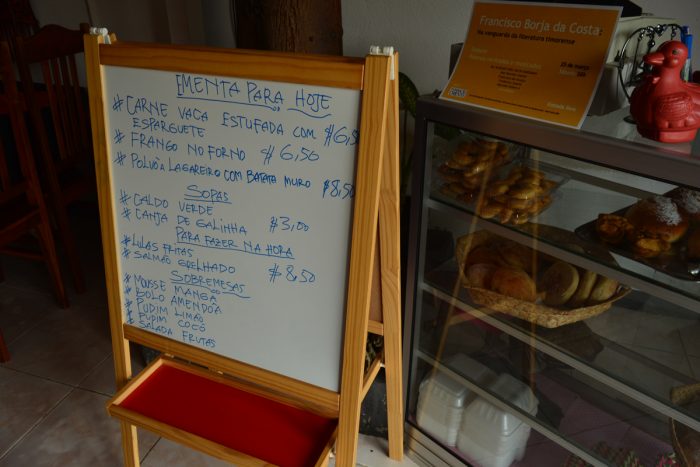 EMENTA PARA HOJE
# CARNE VACA ESTUFADA COM $6,50
ESPARGUETE
# FRANGO NO FORNO $6,50
# POLVO À LAGAREIRO COM BATATA MURO $8,50
SOPAS
# CALDO VERDE
# CANJA DE GALINHA $3,00
PARA FAZER NA HORA
# LULAS FRITAS
# SALMÃO GRELHADO $8,50
SOBREMESAS
# MOUSSE MANGA
# BOLO AMENDOA
# PUDIM LIMÃO
# PUDIM COCÔ
# SALADA FRUTAS
Francisco Borja da Costa:
Na vanguarda da literatura timorense